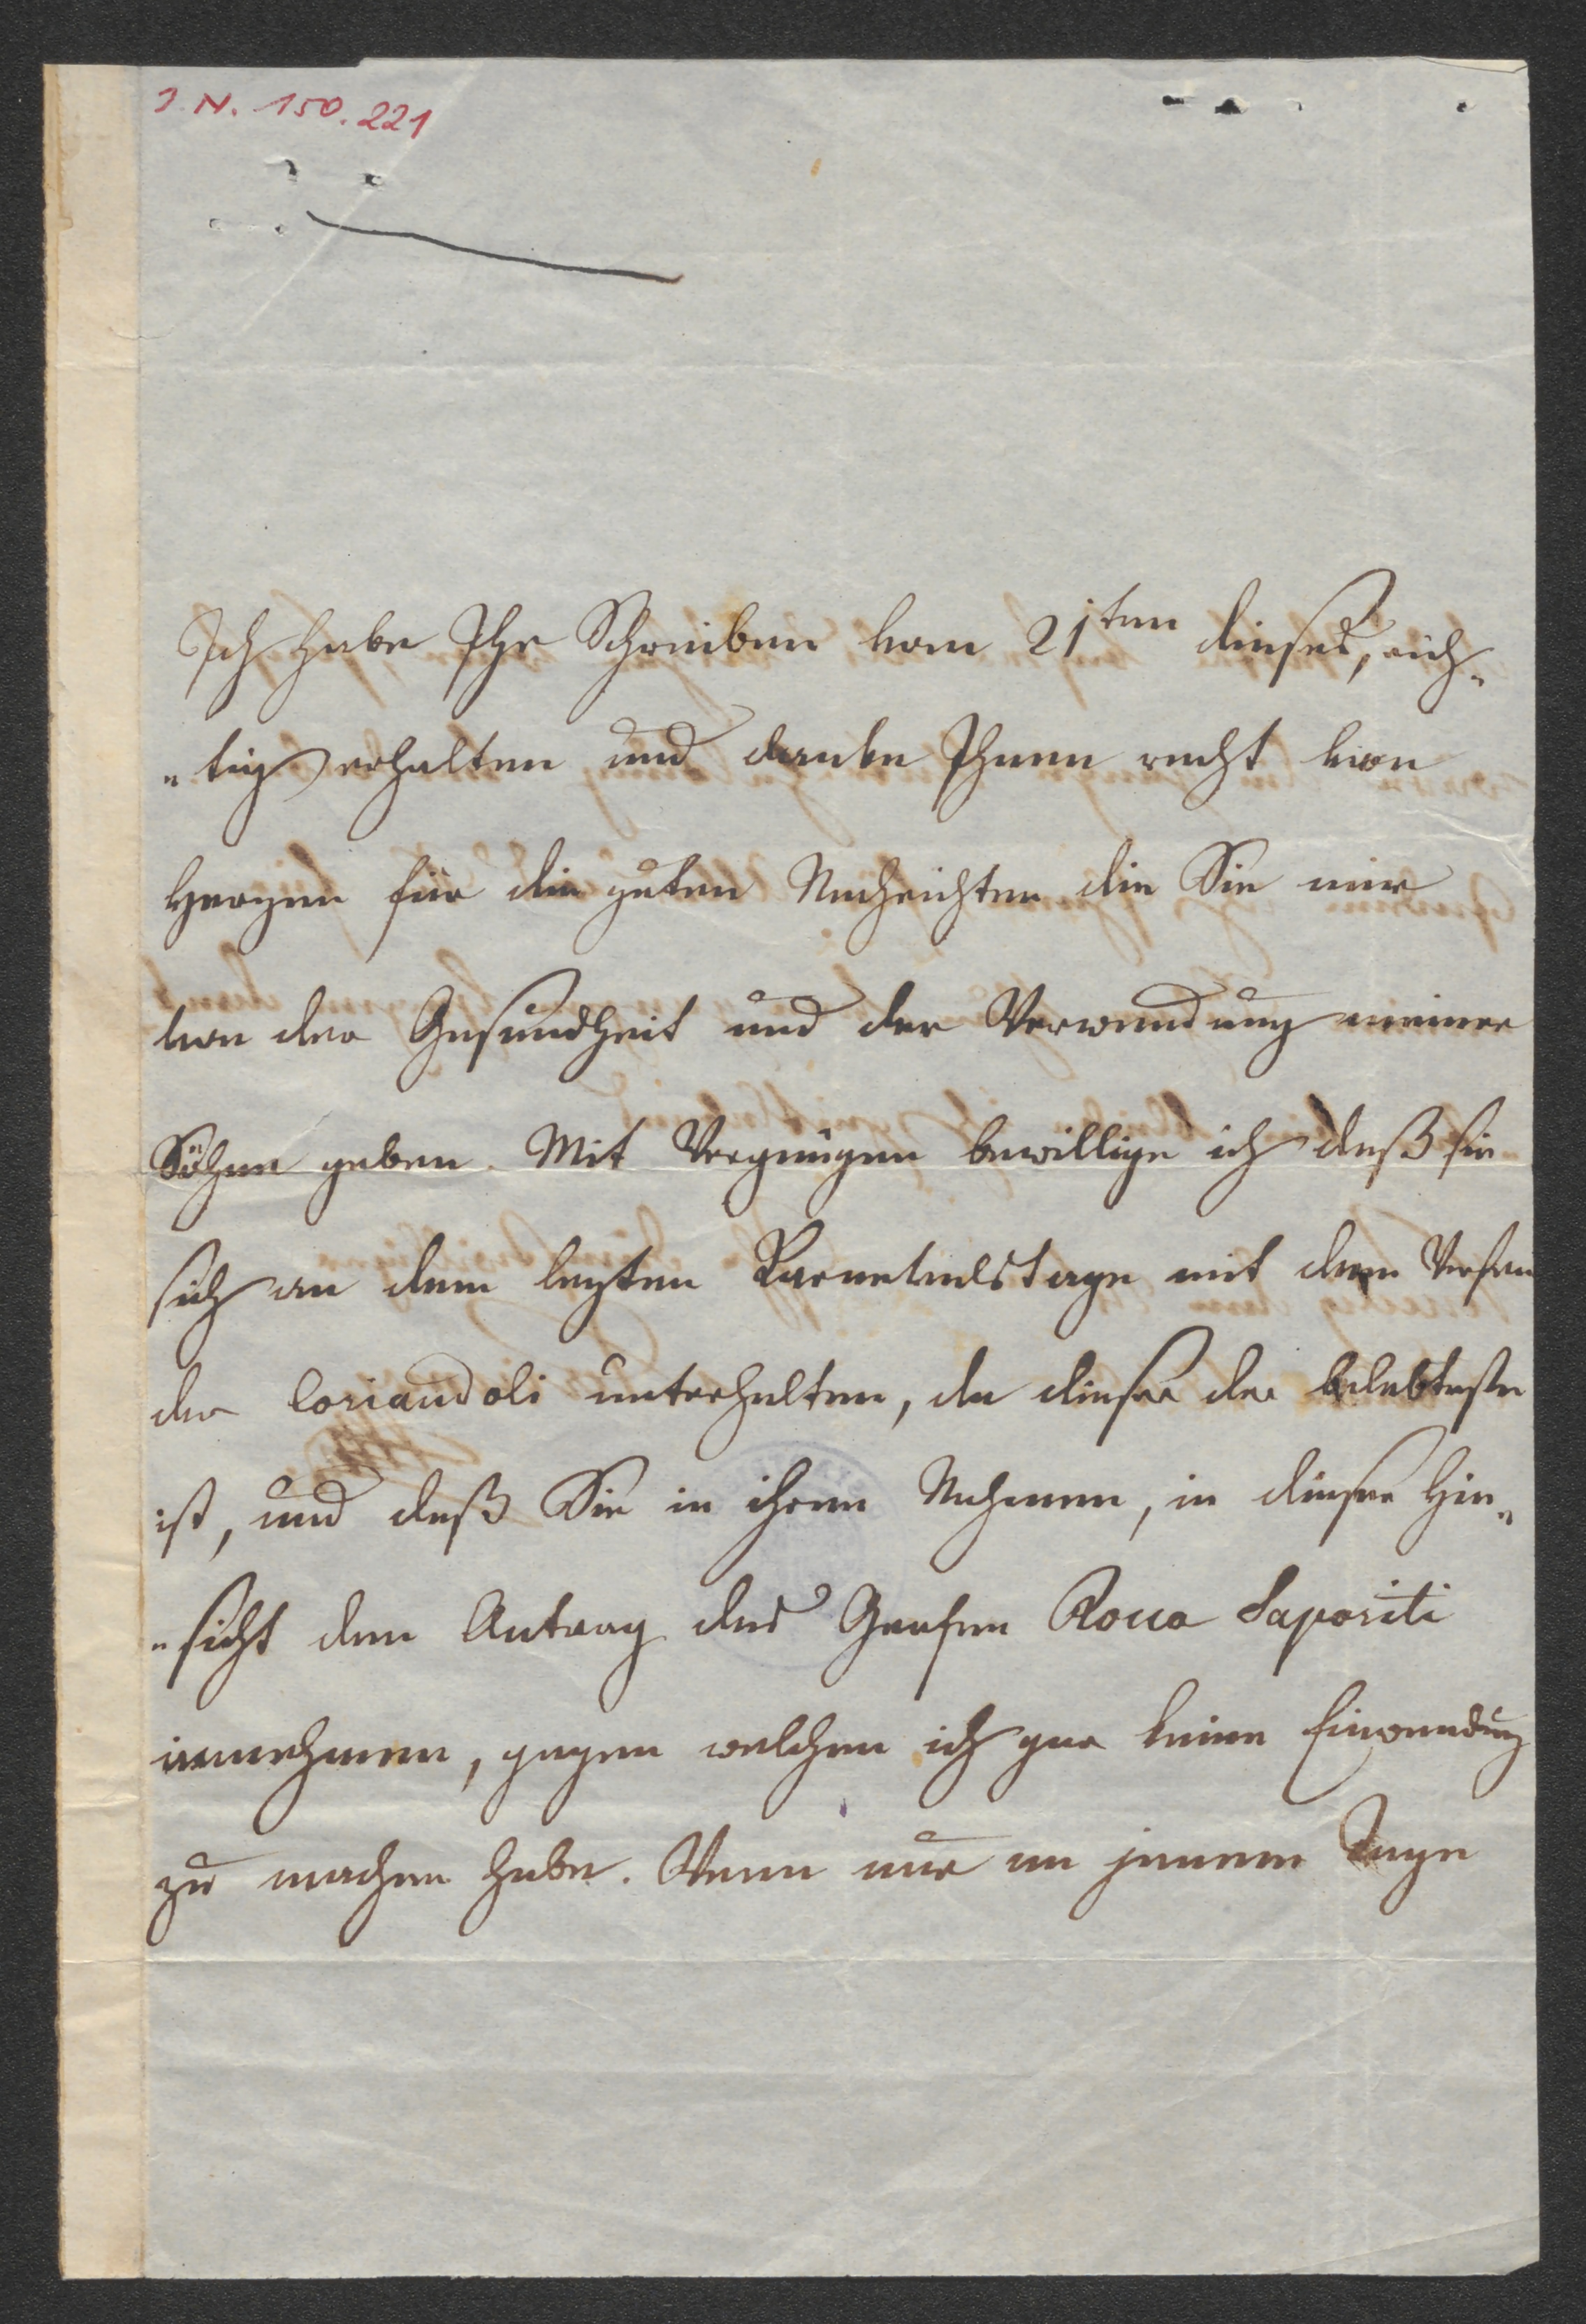 J. N. 150.221
Ich habe Ihr Schreiben vom 21ten dieses, rich„
„tig erhalten und danke Ihnen recht von
Herzen für die guten Nachrichten die Sie mir
von der Gesundheit und der Verwendung meiner
Söhne geben. Mit Vergnügen bewillige ich daß sie
sich an dem lezten Karnevalstage mit dem
der Coriandoli unterhalten, da dieser der belebteste
ist, und daß Sie in ihrem Nahmen, in dieser Hin„
„sicht den Antrag des Grafen Rocca Saporiti
annehmen, gegen welchen ich gar keine Einwendung
zu machen habe. Wenn nur an jenem Tage